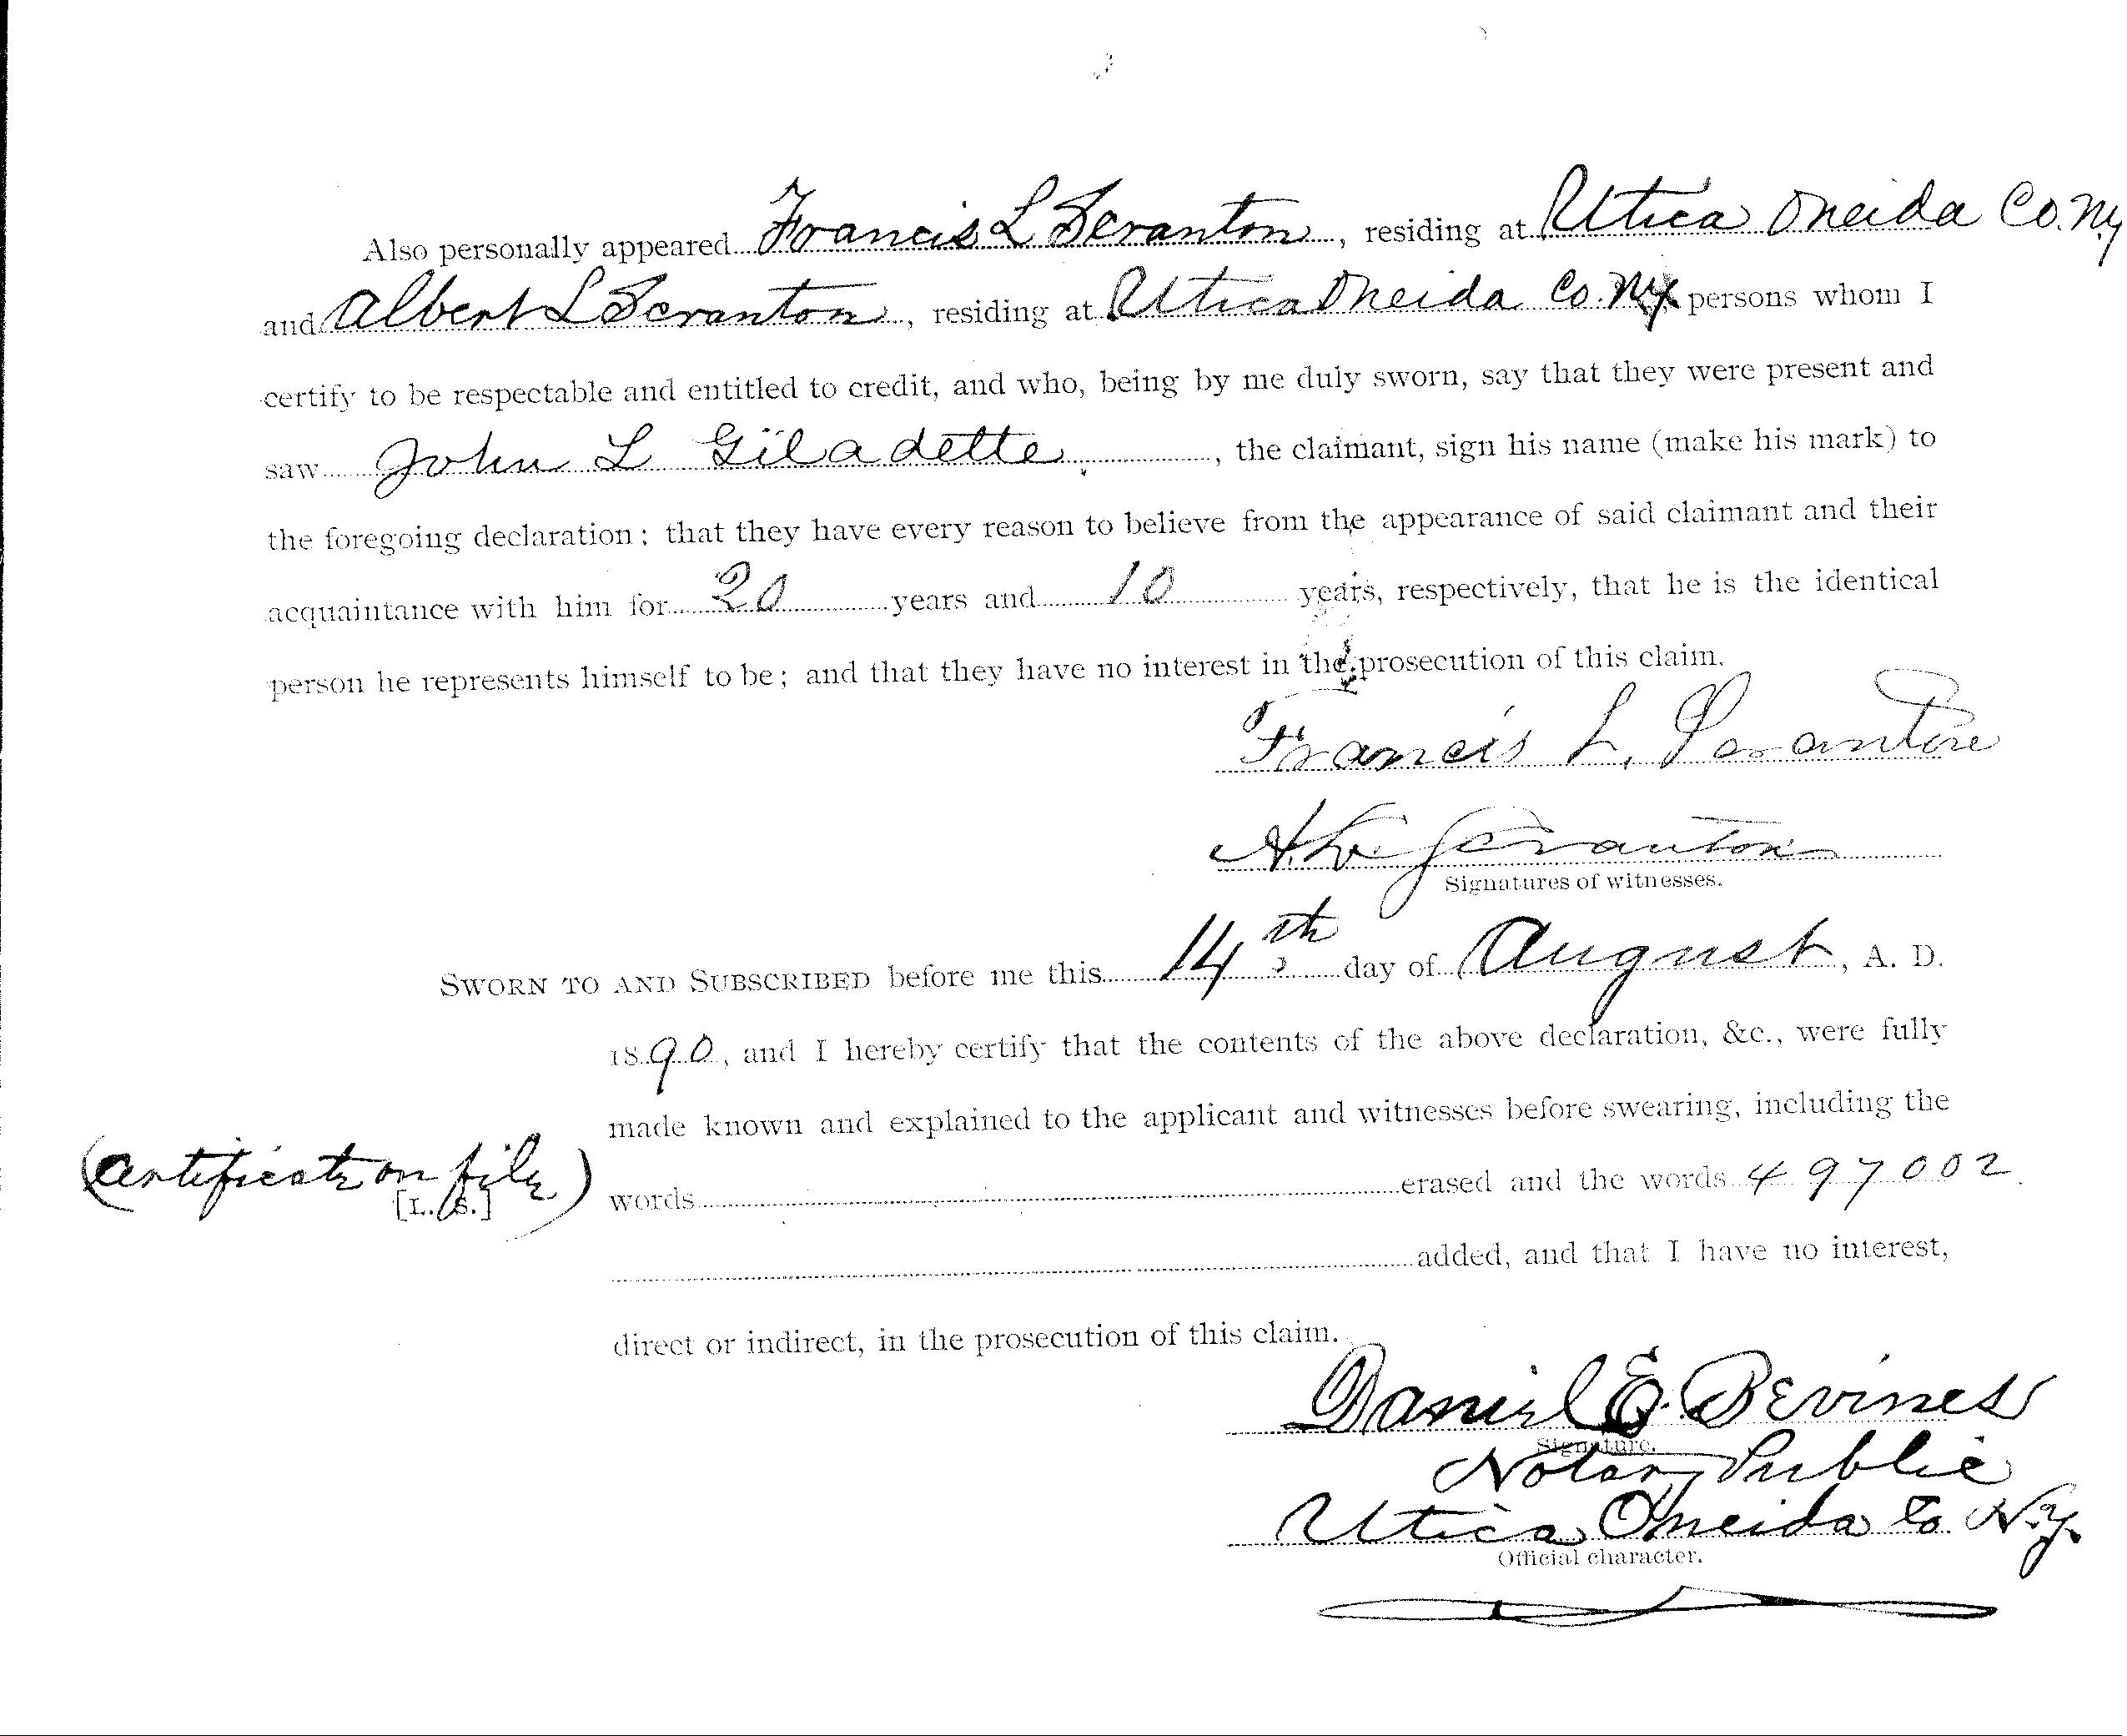 Also personally appeared Francis L Scranton, residing at Utica Oneida Co. N.Y.
and Albert L Scranton, residing at Utica Oneida Co. N.Y. persons whom I
certify to be respectable and entitled to credit, and who, being by me duly sworn, say that they were present and
saw John L Giladette, the claimant, sign his name (make his mark) to
the foregoing declaration; that they have every reason to believe from the appearance of said claimant and their
acquaintance with him for 20 years and 10 years, respectively, that he is the identical
person he represents himself to be; and that they have no interest in the prosecution of this claim.
Francis L. Scranton
A. L. Scranton
Signatures of witnesses.
SWORN TO AND SUBSCRIBED before me this 14th day of August, A. D.
1890, and I hereby certify that the contents of the above declaration, &c., were fully
made known and explained to the applicant and witnesses before swearing, including the
(Certificate on file)
[L. S.]
words erased and the words 497002
added, and that I have no interest,
direct or indirect, in the prosecution of this claim.
Daniel E. Bevines
Signature.
Notary Public
Utica Oneida Co N.Y.
Official character.